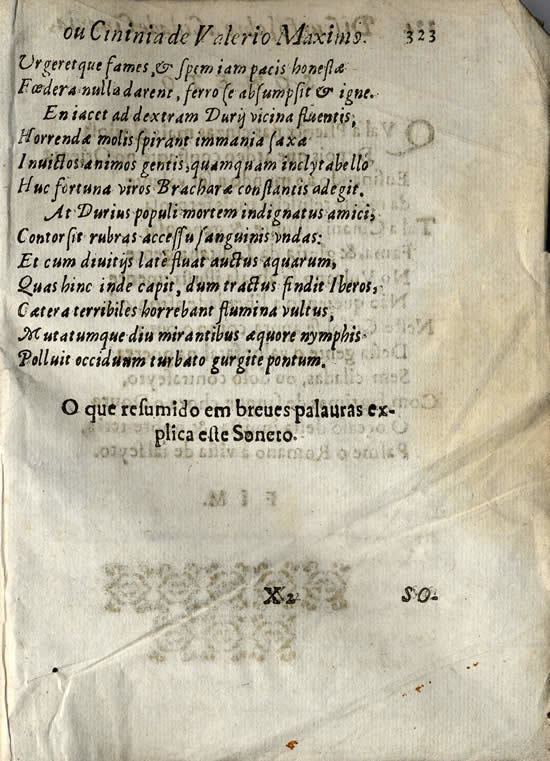 ou Cininia de Valerio Maximo. 323
Urgeretque fames, & spem iam pacis honestæ
Fœdera nulla darent, ferro se absumpsit & igne.
En iacet ad dextram Durij vicina fluentis,
Horrendæ molis spirant immania saxa
Inuictos animos gentis, quamquam inclyta bello
Huc fortuna viros Bracharæ constantis adegit.
At Durius populi mortem indignatus amici,
Contorsit rubras accessu sanguinis vndas:
Et cum diuitijs latè fluat auctus aquarum,
Quas hinc inde capit, dum tractus findit Iberos,
Cætera terribiles horrebant flumina vultus,
Mutatumque diu mirantibus æquore nymphis
Polluit occiduum turbato gurgite pontum.
O que resumido em breues palauras ex-
plica este Soneto.
X2 SO-
FIM.